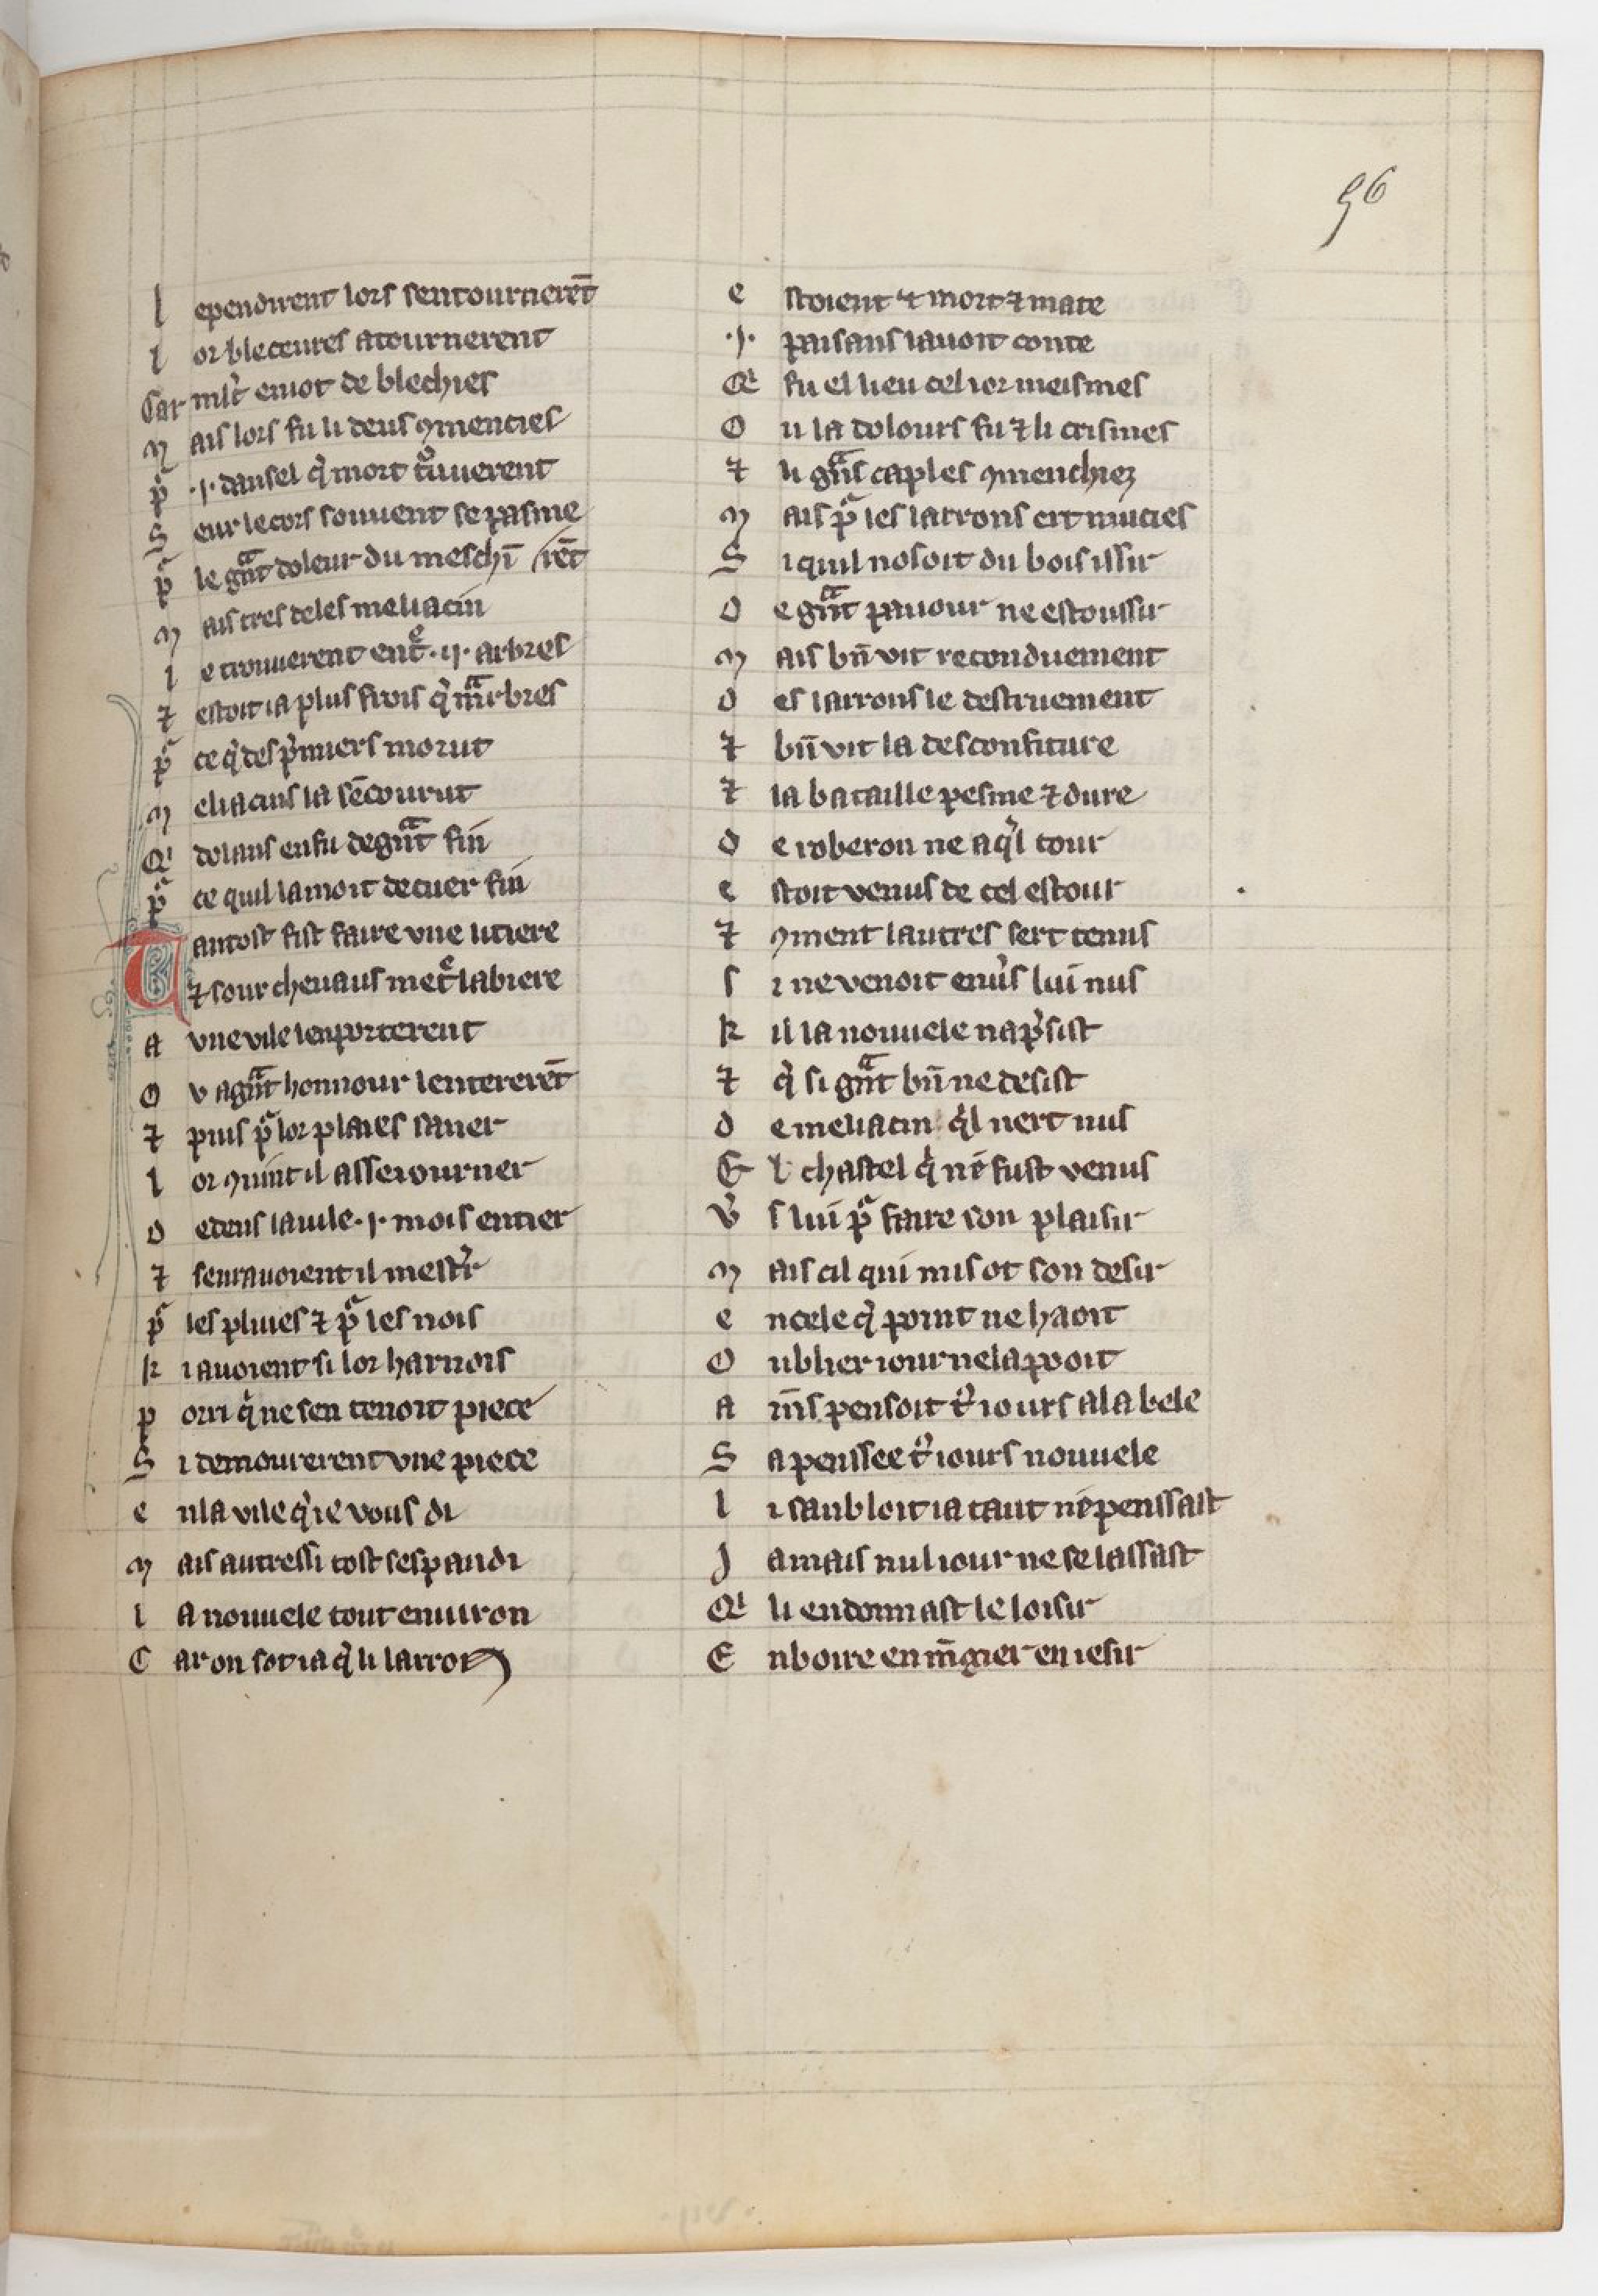 96
l ependirent lors sentournerēt
l or bleceures atournerent
Car mlt᷒ en iot de blechies
M ais lors fu li deus ꝯmencies
pͬ .j. dansel qͥ mort tͦuuerent
S eur le cors souuent se pasme
pͬ le gᷓnt doleur du meschī /rēt
M ais tres deles meliacin
l e trouuerent entͤ .ij. arbres
⁊ estoit ia plus frois qͥ mᷓrbres
pͬ ce qͥ des pͥmiers morut
M eliacins la sēcourut
Qi dolans en fu de gᷓnt fin
pͬ ce quil lamoit de cuer fin
T antost fist faire vne litiere
⁊ sour cheuaus metͤ la biere
A vne vile lenporterent
O v a gᷓnt honnour lentererēt
⁊ puis pͬ lor plaies saner
l or ꝯuint il asseiourner
D edens la uile .j. mois entier
⁊ sen auoient il mest᷒r
pͬ les pluies ⁊ pͬ les nois
K i auoient si lor harnois
p orri qͥ ne sen tenoit piece
S i demourerent vne piece
e n la vile qͥ ie vous di
M ais autressi tost sespandi
l a nouuele tout enuiron
C ar on sot ia qͥ li larron
e stoient ⁊ mort ⁊ mate
.j. paisans lauoit conte
Qi fu el lieu cel ior meismes
O u la dolours fu ⁊ li crismes
⁊ li gᷓns caples ꝯmenchiez
M ais pͬ les larrons ert muciés
S i quil nosoit du bois issir
D e gᷓnt paiour ne estoussir
M ais bn̄ vit reconduement
D es larrons le destruement
⁊ bn̄ vit la desconfiture
⁊ la bataille pesme ⁊ dure
D e roberon ne a qͥl tour
e stoit venus de cel estour
⁊ ꝯment lautres sert tenus
S i ne venoit enu᷒s lui nus
K il la nouuele napͥsist
⁊ qͥ si gᷓnt bn̄ ne desist
D e meliacin qͥl nert nus
E l chastel qͥ nē fust venus
V᷒ s lui pͬ faire son plaisir
M ais cil qui mis ot son desir
e n cele qͥ point ne haoit
O ublier iour ne la pooit
A in̄s pensoit tͦiours a la bele
S a penssee tͦiours nouuele
l i sanbloit ia tant nē penssast
J amais nul iour ne se lassast
Qi li en donnast le loisir
E n boire en mēgier en iesir